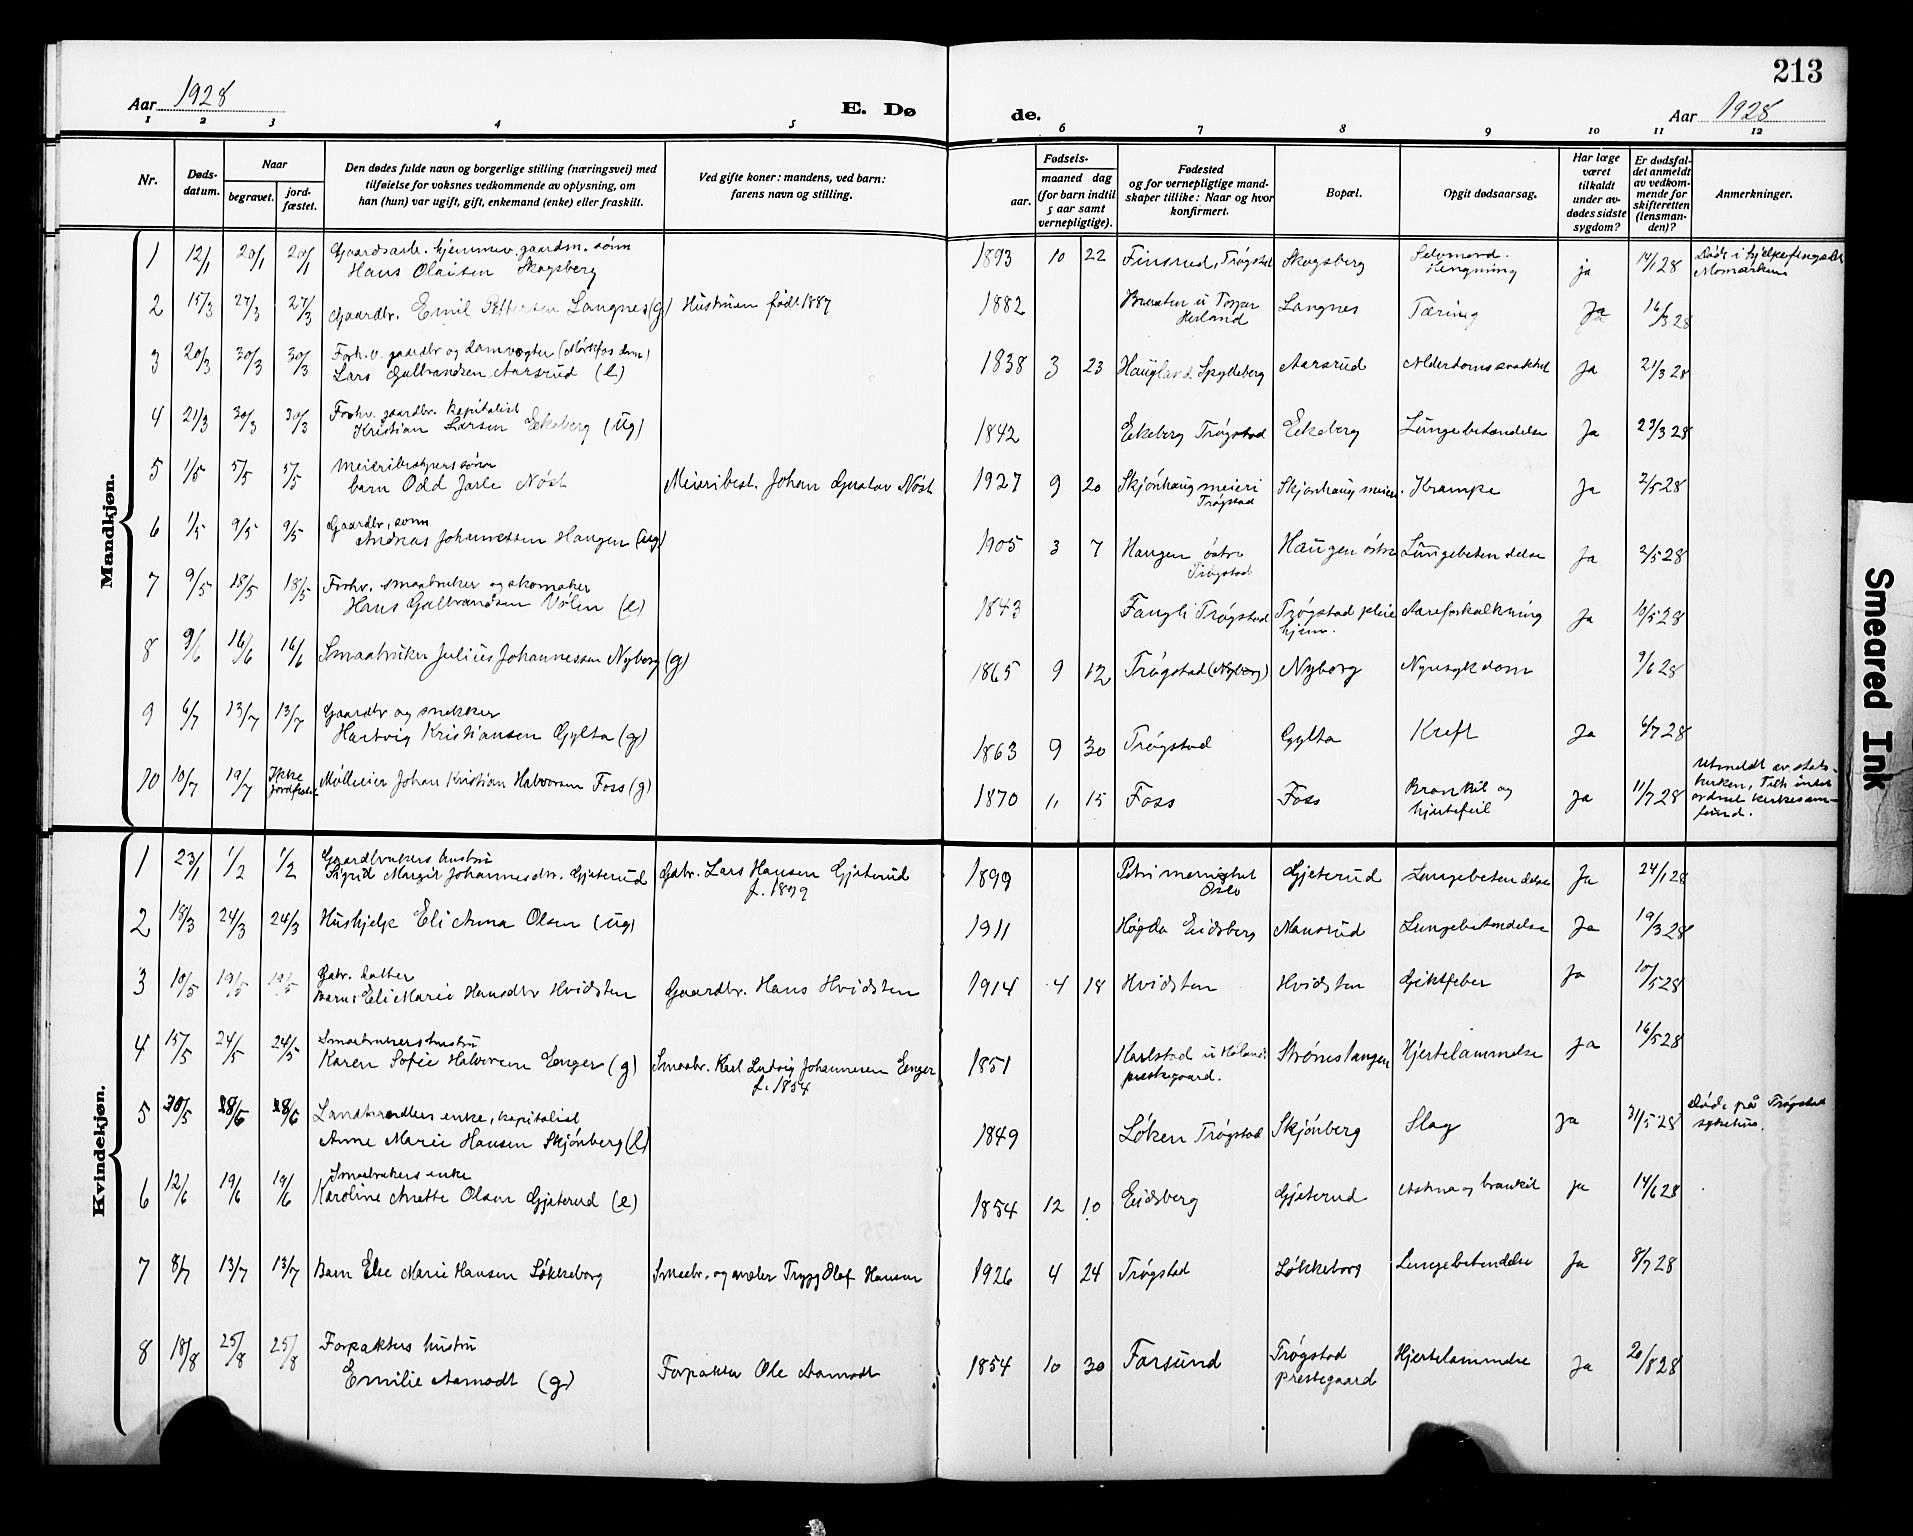 213
Aar 1928
E. Dø
de.
Aar 1928
1 2 3 4 5 6 7 8 9 10 11 12
Nr.
Døds-
datum.
Naar
begravet.
jord-
fæstet.
Den dødes fulde navn og borgerlige stilling (næringsvei) med
tilføielse for voksnes vedkommende av oplysning, om
han (hun) var ugift, gift, enkemand (enke) eller fraskilt.
Ved gifte koner: mandens, ved barn:
farens navn og stilling.
Fødsels-
aar.
maaned dag
(for barn indtil
5 aar samt
vernepligtige).
Fødested
og for vernepligtige mand-
skaper tillike: Naar og hvor
konfirmert.
Bopæl.
Opgit dødsaarsag.
Har læge
været
tilkaldt
under av-
dødes sidste
sygdom?
Er dødsfal-
det anmeldt
av vedkom-
mende for
skifteretten
(lensman-
den)?
Anmerkninger.
Mandkjøn.
1 12/1 20/1 20/1 Gaardsarb. hjemmev. gaardm. sønn
Hans Olaisen Skogsberg 1893 10 22 Finsrud, Trøgstad Skogsberg Selvmord.
Hengning ja 14/1 28 Døde i hjelpefengslet
Momarken
2 15/3 27/3 27/3 Gaardbr. Emil Pettersen Langnes (g) Hustruen født 1887 1882 Braaten u Torper
Herland Langnes Tæring Ja 16/3 28
3 20/3 30/3 30/3 Forh.v. gaardbr og damvogter (Mørkfos dam)
Lars Gulbrandsen Aarsrud (e) 1838 3 23 Haugland Spydeberg Aarsrud Alderdomssvakhet Ja 21/3 28
4 21/3 30/3 30/3 Forhv. gaardbr. kapitalist
Kristian Larsen Eekeberg (ug) 1842 Eekeberg Trøgstad Eekeberg Lungebetændelse Ja 23/3 28
5 1/5 5/5 5/5 Meieribestyrers sønn
barn Odd Jarle Nøst Meieribest. Johan Gustav Nøst 1927 9 20 Skjønhaug meieri
Trøgstad Skjønhaug meieri. Krampe Ja 2/5 28
6 1/5 9/5 9/5 Gaardbr. sønn
Andreas Johannessen Haugen (ug) 1905 3 7 Haugen østre
Trøgstad Haugen østre Lungebetendelse Ja 2/5 28
7 9/5 18/5 18/5 Forhv. smaabruker og skomaker
Hans Gulbrandsen Vølen (e) 1843 Fangli Trøgstad Trøgstad pleie
hjem. Aareforkalkning Ja 10/5 28
8 9/6 16/6 16/6 Smaabruker Julius Johannessen Nyborg (g) 1865 9 12 Trøgstad (Nyborg) Nyborg Nyresykdom 9/6 28
9 6/7 13/7 13/7 Gaardbr og snekker
Hartvig Kristiansen Gylta (g) 1863 9 30 Trøgstad Gylta Kreft Ja 6/7 28
10 10/7 19/7 Ikke
jordfæstet Mølleeier Johan Kristian Halvorsen Foss (g) 1870 11 15 Foss Foss Bronkit og
hjertefeil Ja 11/7 28 Utmeldt av stats-
kirken, Tilh intet
ordnet kirkesam-
fund.
Kvindekjøn.
1 23/1 1/2 1/2 Gaardbrukers hustru
Sigrid Margit Johannesdtr. Gjeterud Gabr. Lars Hansen Gjeterud
f. 1899 1899 Petri menighet
Oslo Gjeterud Lungebetendelse Ja 24/1 28
2 18/3 24/3 24/3 Hushjelp Eli Anna Olsen (ug) 1911 Høgda Eidsberg Monsrud Lungebetendelse Ja 19/3 28
3 10/5 19/5 19/5 Gabr. datter
Barn: Eli Marie Hansdtr Hvidsten Gaardbr. Hans Hvidsten 1914 4 18 Hvidsten Hvidsten Giktfeber Ja 10/5 28
4 15/5 24/5 24/5 Smaabrukers hustru
Karen Sofie Halvorsen Enger (g) Smaabr. Karl Ludvig Johannesen Enger
f. 1854 1851 Karlstad u Hølands
prestegaard. Strømslangen Hjertelammelse ja 16/5 28
5 30/5 8/6 8/6 Landhandlers enke, kapitalist
Anne Marie Hansen Skjønberg (e) 1849 Løken Trøgstad Skjønberg Slag ja 31/5 28 Døde på Trøgstad
sykehus.
6 12/6 19/6 19/6 Smaabrukers enke
Karoline Anette Olsen Gjeterud (e) 1854 12 10 Eidsberg Gjeterud Astma og bronkit ja 14/6 28
7 8/7 13/7 13/7 Barn Else Marie Hansen Løkkeborg Smaabr. og maler Trygg Olaf Hansen 1926 4 24 Trøgstad Løkkeborg Lungebetendelse Ja 8/7 28
8 18/8 25/8 25/8 Forpakters hustru
Emilie Aamodt (g) Forpakter Ole Aamodt 1854 10 30 Farsund Trøgstad
prestegaard Hjertelammelse Ja 20/8 28
Smeared Ink